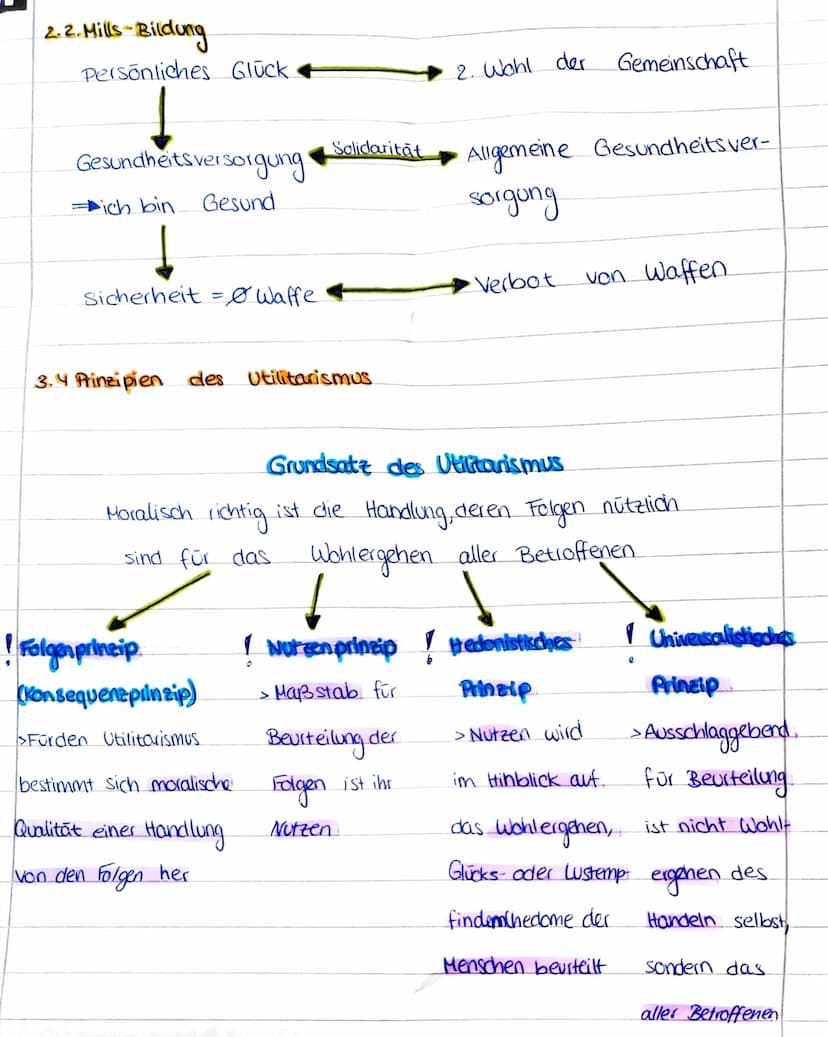 2.2. Mills-Bildung
Persönliches Glück 2. Wohl der Gemeinschaft
Gesundheitsversorgung Solidarität Allgemeine Gesundheitsver-
⇒ ich bin Gesund sorgung
Sicherheit = Ø Waffe Verbot von Waffen
3. 4 Prinzipien des Utilitarismus
Grundsatz des Utilitarismus
Moralisch richtig ist die Handlung, deren Folgen nützlich
sind für das Wohlergehen aller Betroffenen
! Folgenprinzip
(Konsequenzprinzip)
> Für den Utilitarismus
bestimmt sich moralische
Qualität einer Handlung
von den Folgen her
! Nutzenprinzip
> Maßstab für
Beurteilung der
Folgen ist ihr
Nutzen
! Hedonistisches
Prinzip
> Nutzen wird
im Hinblick auf
das Wohlergehen,
Glücks- oder Lustemp-
der
Menschen beurteilt
! Universalistisches
Prinzip
> Ausschlaggebend
für Beurteilung
ist nicht Wohl-
ergehen des
Handeln selbst,
sondern das
aller Betroffenen